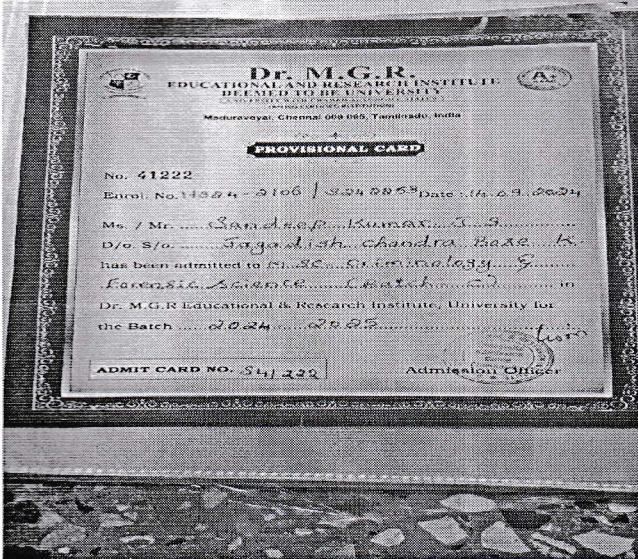 Dr. M.G.R.
EDUCATIONAL AND RESEARCH INSTITUTE
DEEMED TO BE UNIVERSITY
Maduravoyal, Chennai 600 095, Tamilnadu, India
PROVISIONAL CARD
No. 41222
Enrol. No. Date : 14.09.2024
Ms. / Mr. Sandeep Kumar J S
D/o. S/o. Jagadish Chandra Bose K
has been admitted to M.Sc Criminology &
Forensic Science (Batch in
Dr. M.G.R Educational & Research Institute, University for
the Batch 2024 2025
ADMIT CARD NO. S41222
Admission Officer
A+